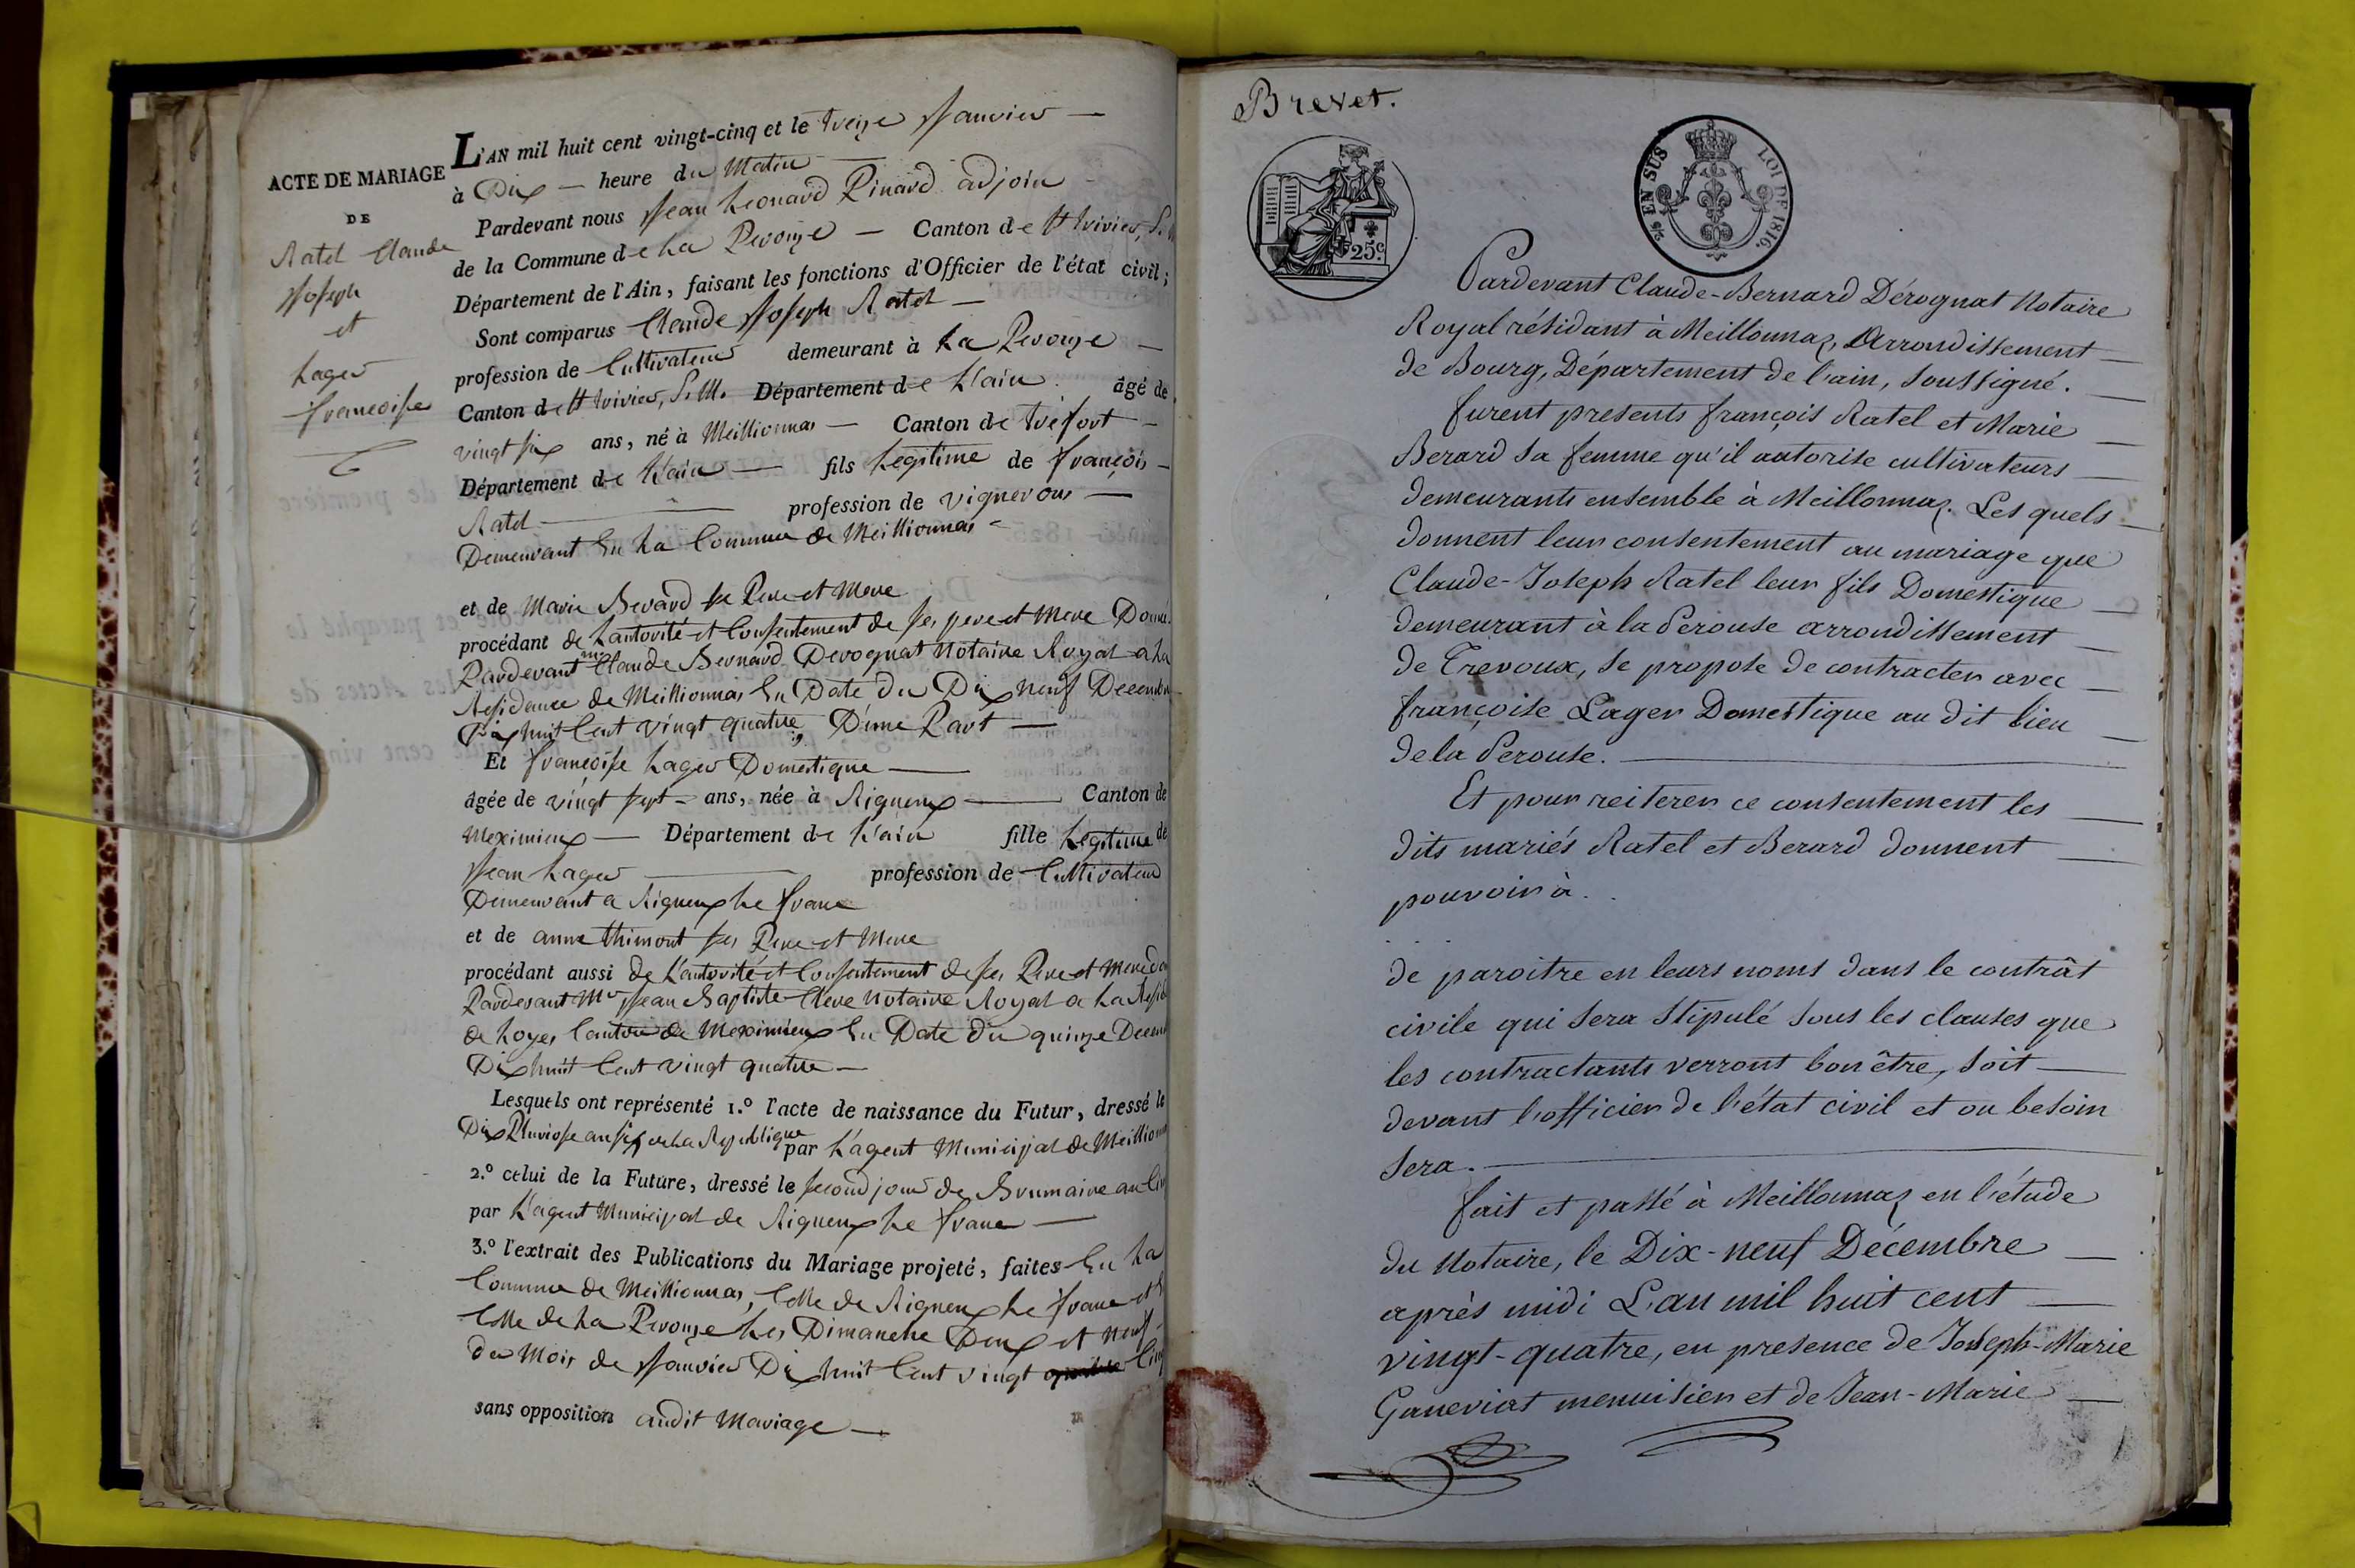 ACTE DE MARIAGE
DE
Ratel Claude
Joseph
et
Lager
francoise
L'AN mil huit cent vingt-cinq et le treize Janvier —
à Dix — heure du Matin —
Pardevant nous Jean Leonard Pinard adjoin
de la Commune de La Perouze — Canton de St trivier, S. M
Département de l'Ain, faisant les fonctions d'Officier de l'état civil;
Sont comparus Claude Joseph Ratel —
profession de Cultivateur demeurant à La Perouze —
Canton de St trivier, S. M. Département de L'ain âgé de
vingt six ans, né à Meillionnas — Canton de tréfort —
Département de L'ain — fils Legitime de françois —
Ratel — profession de vigneron —
Demeurant En La Commune de Meillionnas —
et de Marie Berard se Pere et Mere
procédant de Lautorité et Consentement de ses pere et Mere Donné
Pardevant me Claude Bernard Derognat Notaire Royal a La
Residance de Meillionnas En Date du Dix neuf Decembre
Dix huit Cent vingt quatre, D'une Part —
Et françoise Lager Domestique —
âgée de vingt sept — ans, née à Rigneux — Canton de
Meximieux — Département de L'ain fille Legitime de
Jean Lager — profession de Cultivateur
Demeurant a Rigneux Le franc
et de anne thimont ses Pere et Mere
procédant aussi de L'autorité et Consentement de ses Pere et Mere do
Pardevant Me Jean Baptiste Cleve Notaire Royal a La Resid
de Loyes Canton de Meximieux En Date du quinze Decem
Dix huit Cent vingt quatre —
Lesquels ont représenté 1.º l'acte de naissance du Futur, dressé le
Dix Pluviose an six de La Republique par L'agent Municipal de Meillionna
2.º celui de la Future, dressé le second jour de Brumaire an Cin
par L'agent Municipal de Rigneux Le franc —
3.º l'extrait des Publications du Mariage projeté, faites En La
Commune de Meillionnas, Celle de Rigneux Le franc et
Celle de La Perouze Les Dimanche Deux et Neuf
du Mois de Janvier Dix huit Cent vingt Cinq
sans opposition audit Mariage —
Brevet.
25c.
EN SUS
LOI DE 1816.
Pardevant Claude-Bernard Dérognat Notaire
Royal résidant à Meillonnaz, Arrondissement —
de Bourg, Département de l'ain, soussigné. —
furent presents françois Ratel et Marie —
Berard sa femme qu'il autorise cultivateurs —
demeurants ensemble à Meillonnaz. Les quels —
donnent leur consentement au mariage que
Claude-Joseph Ratel leur fils Domestique —
demeurant à la Perouse arrondissement —
de Trevoux, se propose de contracter avec —
françoise Lager Domestique au dit lieu —
de la Perouse. —
Et pour reiterer ce consentement les —
dits mariés Ratel et Berard donnent —
pouvoir à . .
de paroitre en leurs noms dans le contrât
civile qui sera stipulé sous les clauses que
les contractants verront bon être, soit —
devant l'officier de l'état civil et ou besoin
sera. —
fait et passé à Meillonnaz en l'étude
du Notaire, le Dix-neuf Décembre —
après midi L'an mil huit cent —
vingt-quatre, en presence de Joseph-Marie
Ganeviat menuisier et de Jean-Marie —